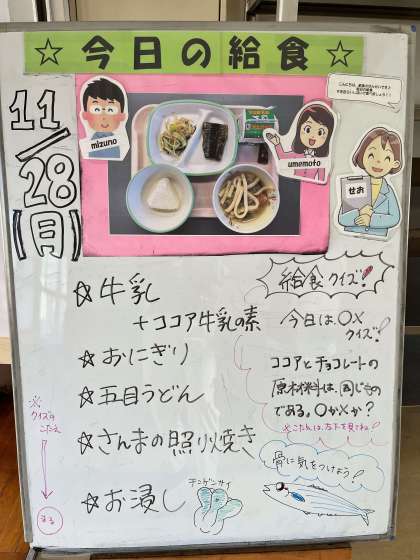 ☆今日の給食☆
11/28(月)
mizuno
umemoto
せお
☆牛乳
+ココア牛乳の素
☆おにぎり
☆五目うどん
☆さんまの照り焼き
☆お浸し
チンゲンサイ
給食クイズ!
今日は○×
クイズ!
ココアとチョコレートの
原材料は、同じもの
である。○か×か?
※こたえは、左下を見てね!
骨に気をつけよう!
※
クイズの
こたえ
まる